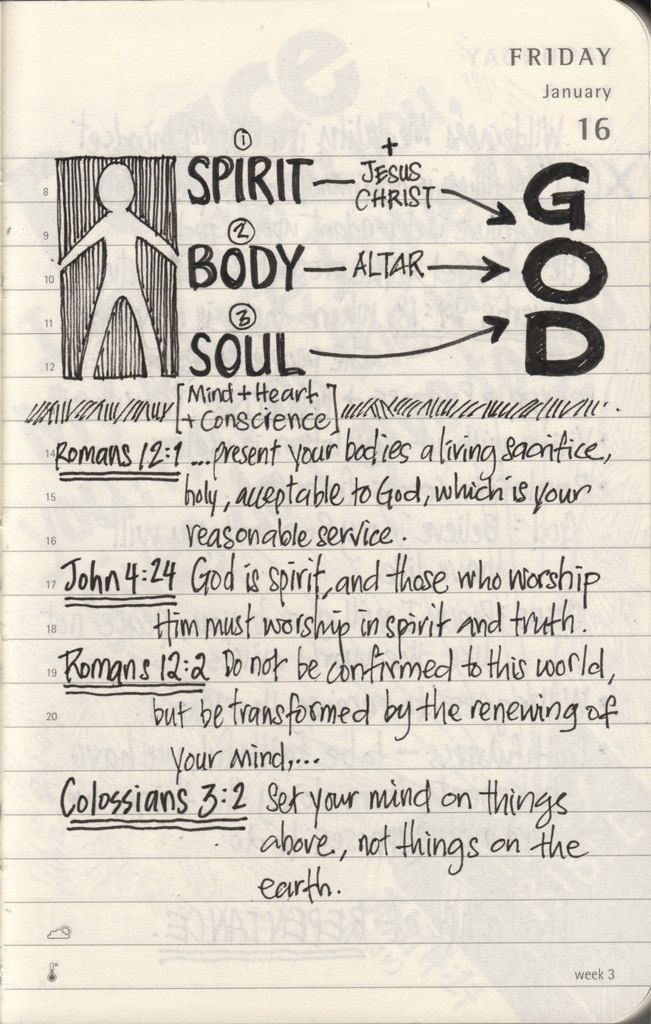 FRIDAY
January
16
① SPIRIT — + JESUS CHRIST → GOD
② BODY — ALTAR →
③ SOUL →
[Mind + Heart
+ Conscience]
8
9
10
11
12
14
15
16
17
18
19
20
Romans 12:1 ...present your bodies a living sacrifice,
holy, acceptable to God, which is your
reasonable service.
John 4:24 God is spirit, and those who worship
Him must worship in spirit and truth.
Romans 12:2 Do not be confirmed to this world,
but be transformed by the renewing of
your mind,...
Colossians 3:2 Set your mind on things
above, not things on the
earth.
week 3